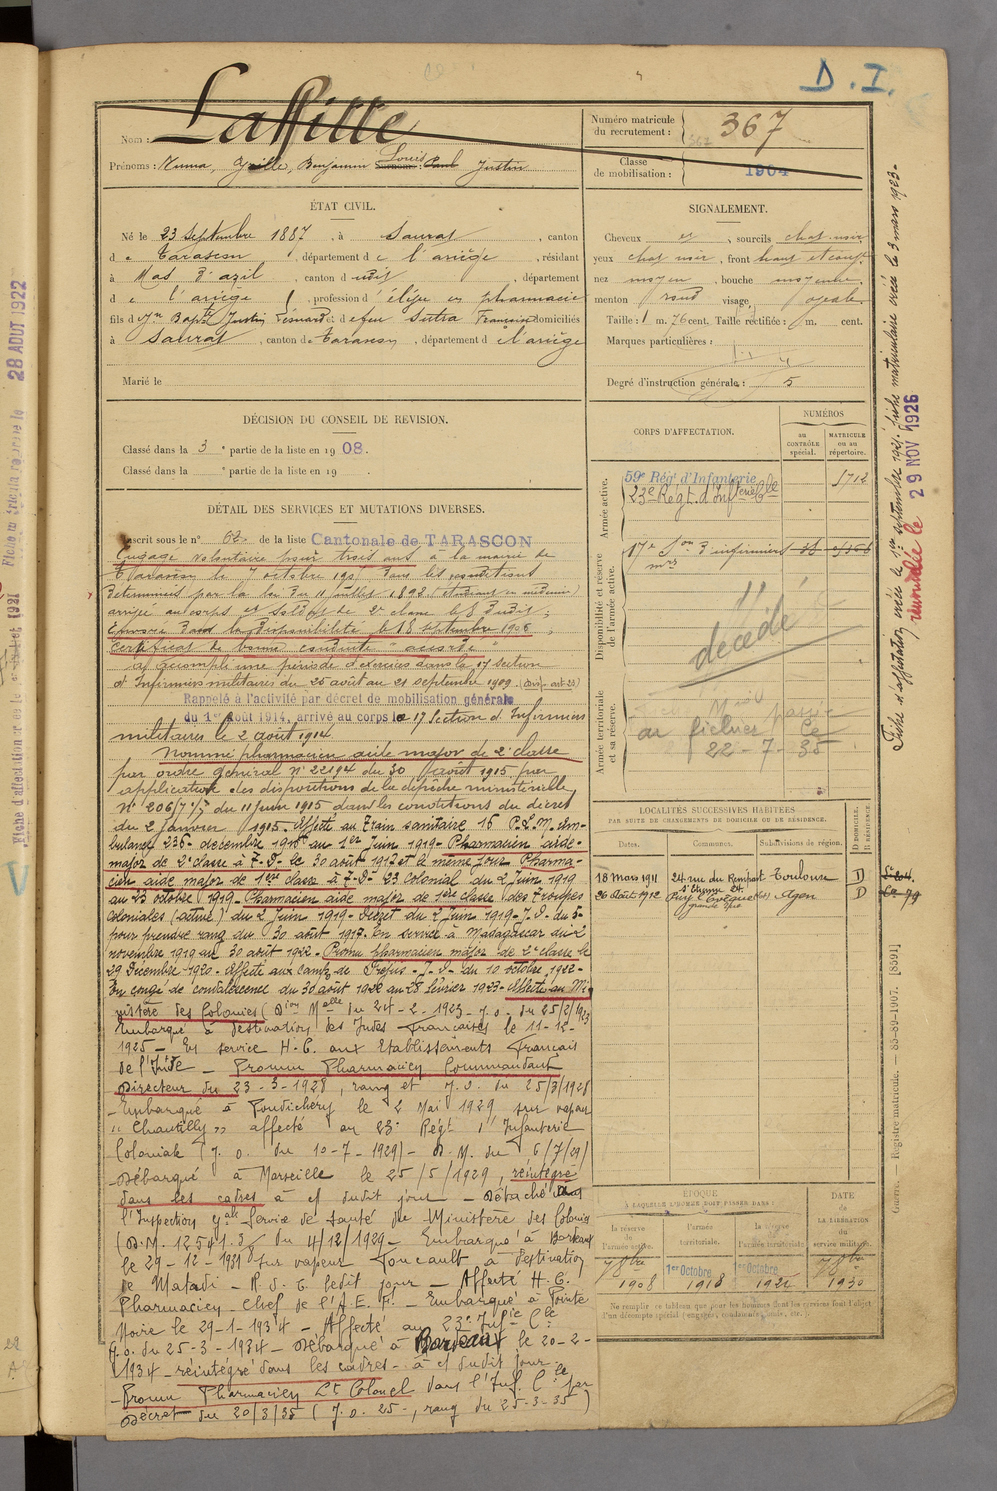 D. I.
Nom : Laffitte
Prénoms : Numa, Benjamin Louis Surnom : Paul Justin
Numéro matricule
du recrutement : 367
Classe
de mobilisation : 1904
ÉTAT CIVIL.
Né le 23 Septembre 1887, à Saurat, canton
de Tarascon, département de l'ariège, résidant
à Mas d'azil, canton dudit, département
de l'ariège, profession d'élève en pharmacie
fils de Jn Bapte Justin et de feu Sutra Françoise domiciliés
à Saurat, canton de Tarascon, département de l'ariège
Marié le
SIGNALEMENT.
Cheveux et, sourcils chat. noir
yeux chat noir, front haut et
nez moyen, bouche moyenne
menton rond visage ovale.
Taille : 1 m. 76 cent. Taille rectifiée : m. cent.
Marques particulières :
Degré d'instruction générale : 5
DÉCISION DU CONSEIL DE REVISION.
Classé dans la 3e partie de la liste en 1908.
Classé dans la e partie de la liste en 19
DÉTAIL DES SERVICES ET MUTATIONS DIVERSES.
Inscrit sous le n° 62 de la liste Cantonale de TARASCON
Engagé volontaire pour trois ans à la mairie de
Tarascon le 7 octobre 1907 dans les conditions
déterminées par la loi du 11 juillet 1892 (étudiant en médecine)
arrivé au corps et soldat de 2e classe le 8 dudit ;
Envoyé dans la disponibilité le 18 septembre 1908 ;
Certificat de bonne conduite "accordé"
a accompli une période d'exercices dans la 17 section
d'Infirmiers militaires du 25 août au 21 septembre 1909
Rappelé à l'activité par décret de mobilisation générale
du 1er août 1914, arrivé au corps le 17 Section d'Infirmiers
militaires le 2 août 1914
Nommé pharmacien aide major de 2e classe
par ordre général n° 22194 du 30 août 1915 par
application des dispositions de la dépêche ministérielle
n° 206/7 du 11 juin 1915 dans les conditions du décret
du 2 janvier 1915. Affecté au train sanitaire 16 P.L.M. Am-
bulance 236 décembre au 1er Juin 1919 - Pharmacien aide-
major de 2e classe à T.D. le 30 août 1917 et le même jour Pharma-
cien aide major de 1ère classe à T.D. 23 colonial du 2 Juin 1919
au 23 octobre 1919 - Pharmacien aide major de 1ère classe des Troupes
Coloniales (active) du 2 Juin 1919 - Décret du 2 Juin 1919 - J.O. du 5
pour prendre rang du 30 août 1917. En service à Madagascar du 2
novembre 1919 au 30 août 1922 - Promu pharmacien major de 2e classe le
29 Décembre 1920 - Affecté aux camps de Fréjus - J.O. du 10 octobre 1922 -
En congé de convalescence du 30 août 1922 au 28 février 1923 - Affecté au Mi-
nistère des Colonies (Dion Melle du 24-2-1923 - J.O. du 25/2/1923
Embarqué à destination des Indes Françaises le 11-12-
1925 - En service H.C. aux Etablissements Français
de l'Inde - Promu Pharmacien Commandant
Directeur du 23-3-1928, rang et J.O. du 25/3/1928
- Embarqué à Pondichéry le 2 Mai 1929 sur vapeur
"Chantilly" affecté au 23e Régt d'Infanterie
Coloniale (J.O. du 10-7-1929) - D.M. du 6/7/29)
- Débarqué à Marseille le 25/5/1929, réintégré
dans les cadres à ct dudit jour - Détaché à
l'Inspection gale Service de Santé du Ministère des Colonies
(D.M. 12541.3/8 du 4/12/1929 - Embarqué à Bordeaux
le 29-12-1931 sur vapeur Foucault à destination
de Matadi - R.S.C. ledit jour - Affecté H.C.
Pharmacien - Chef de l'A.E.F. - Embarqué à Pointe
Noire le 29-1-1934 - Affecté au 23e Infie Cle
J.O. du 25-3-1934 - Débarqué à Bordeaux le 20-2-
1934 - réintégré dans les cadres - à ct dudit jour -
- Promu Pharmacien Lt Colonel dans l'Inf. Cle par
Décret du 20/3/35 (J.O. 25-, rang du 25-3-35)
CORPS D'AFFECTATION.
NUMÉROS
au
CONTRÔLE
spécial.
MATRICULE
ou au
répertoire.
Armée active.
59e Rég' d'Infanterie
23e Régt. d'Infterie Cle
5712
Disponibilité et réserve
de l'armée active.
17e Son d'infirmiers
mres
décédé
Armée territoriale
et sa réserve.
au fichier Ce
22-7-35
LOCALITÉS SUCCESSIVES HABITÉES
PAR SUITE DE CHANGEMENTS DE DOMICILE OU DE RÉSIDENCE.
Dates.
Communes.
Subdivisions de région.
D DOMICILE.
R RÉSIDENCE
18 Mars 1911 24 rue du Rempart Toulouse D
St Etienne 24.
26 Août 1912 Agen D
grande rue
ÉPOQUE
À LAQUELLE L'HOMME DOIT PASSER DANS :
la réserve
de
l'armée active.
l'armée
territoriale.
la réserve
de
l'armée territoriale.
DATE
de
LA LIBÉRATION
du
service militaire.
7bre
1908
1er Octobre
1918
1er Octobre
1924
1930
Ne remplir ce tableau que pour les hommes dont les services font l'objet
d'un décompte spécial (engagés, condamnés, etc.).
Fiche d'affectation créée le 1er septembre 1921. fiche matriculaire créée le 3 mars 1923-
renouvelée le 29 NOV 1926
Registre matricule. - 83-89-1907. [8591]
28 AOUT 1922